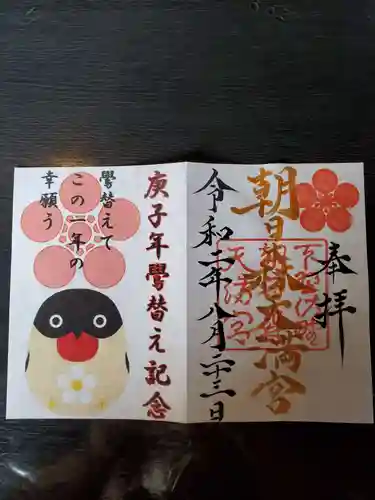 奉拝
朝日森天満宮
令和二年八月二十三日
庚子年鷽替え記念
鷽替えて
この一年の
幸願う